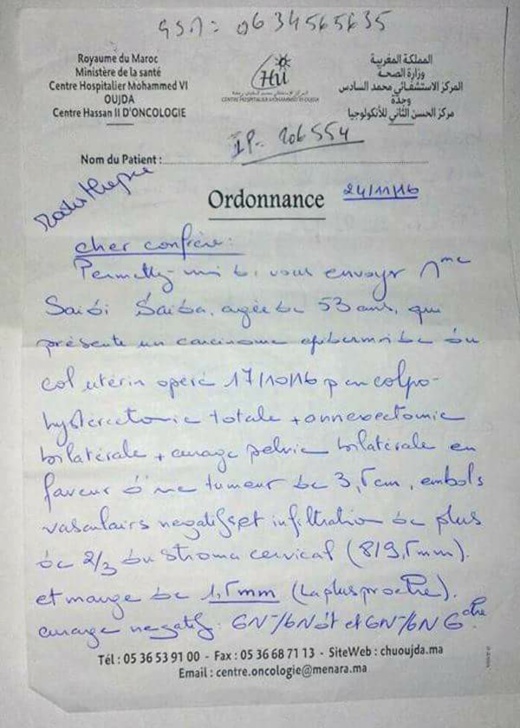 GSM = 0634565635
Royaume du Maroc
Ministère de la santé
Centre Hospitalier Mohammed VI
OUJDA
Centre Hassan II D'ONCOLOGIE
CHU
CENTRE HOSPITALIER MOHAMMED VI OUJDA
المملكة المغربية
وزارة الصحة
المركز الاستشفائي محمد السادس
وجدة
مركز الحسن الثاني للأنكولوجيا
IP- 206554
Nom du Patient :
Ordonnance
24/11/16
cher confrère:
Permettez-moi de vous envoyer Mme
Saidi Saiba, agée de 53 ans, qui
présente un carcinome epidermoide du
col utérin opéré 17/10/16 par colpo-
hysterectomie totale + annexectomie
bilatérale + curage pelvic bilatérale en
faveur d'une tumeur de 3,5cm, embols
vasculairs negatifs et infiltration de plus
de 2/3 du stroma cervical (8/9,5mm).
et marge de 1,5mm (la plus proche).
curage negatif: 6N-/6N dt et 6N-/6N Gche
Tél : 05 36 53 91 00 - Fax : 05 36 68 71 13 - SiteWeb : chuoujda.ma
Email : centre.oncologie@menara.ma